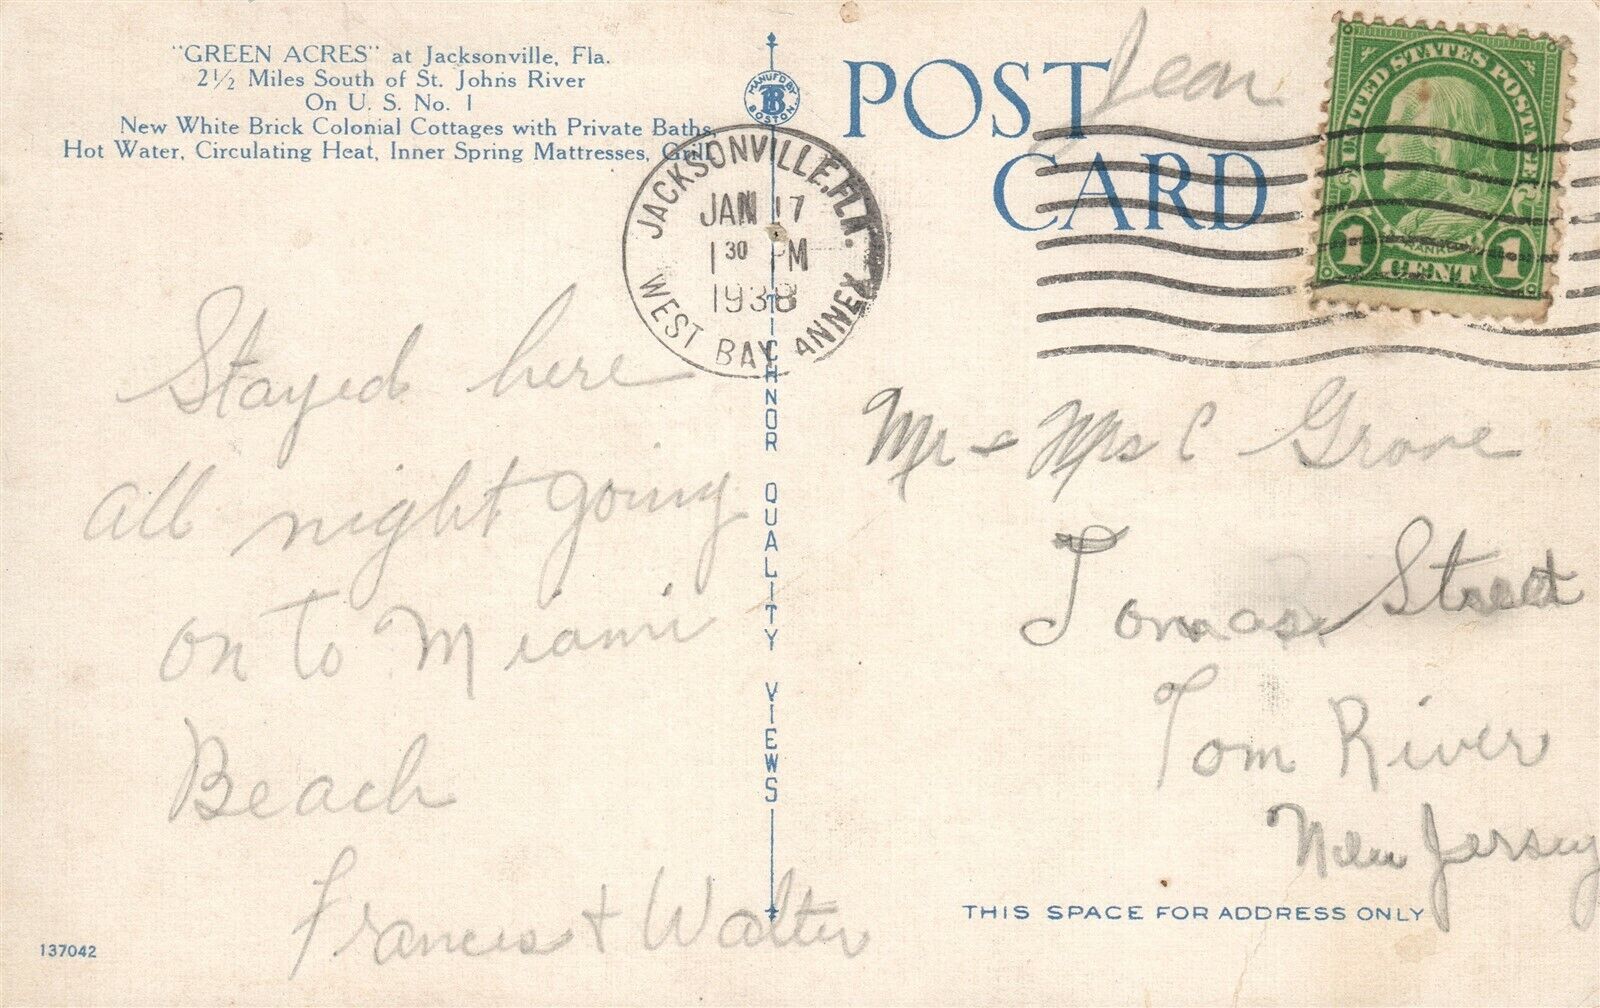 "GREEN ACRES" at Jacksonville, Fla.
2½ Miles South of St. Johns River
On U. S. No. 1
New White Brick Colonial Cottages with Private Baths,
Hot Water, Circulating Heat, Inner Spring Mattresses, Grill
MANUFD BY
TB
BOSTON
POST
CARD
Jean
UNITED STATES POSTAGE
1 CENT 1
JACKSONVILLE, FLA.
JAN 17
1 30 PM
1938
WEST BAY ANNEX
TICHNOR QUALITY VIEWS
Stayed here
all night going
on to Miami
Beach
Francis + Walter
Mr & Mrs C Grove
Street
Tom River
New Jersey
THIS SPACE FOR ADDRESS ONLY
137042